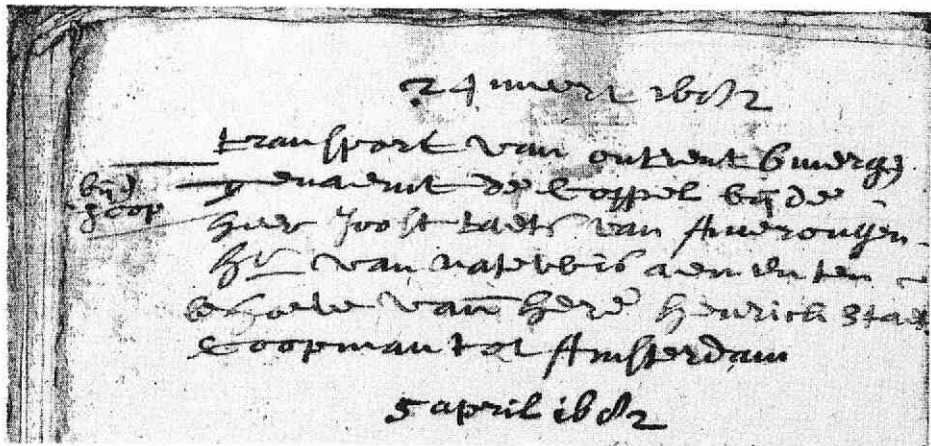 24 meert 1682
transport van ontrent 6 merg
genaemt de Coppel bij de
heer Joost taets van Amerongen
hr van natewis aen en ten
behoeve van here Henrich
Coopman tot Amsterdam
5 april 1682